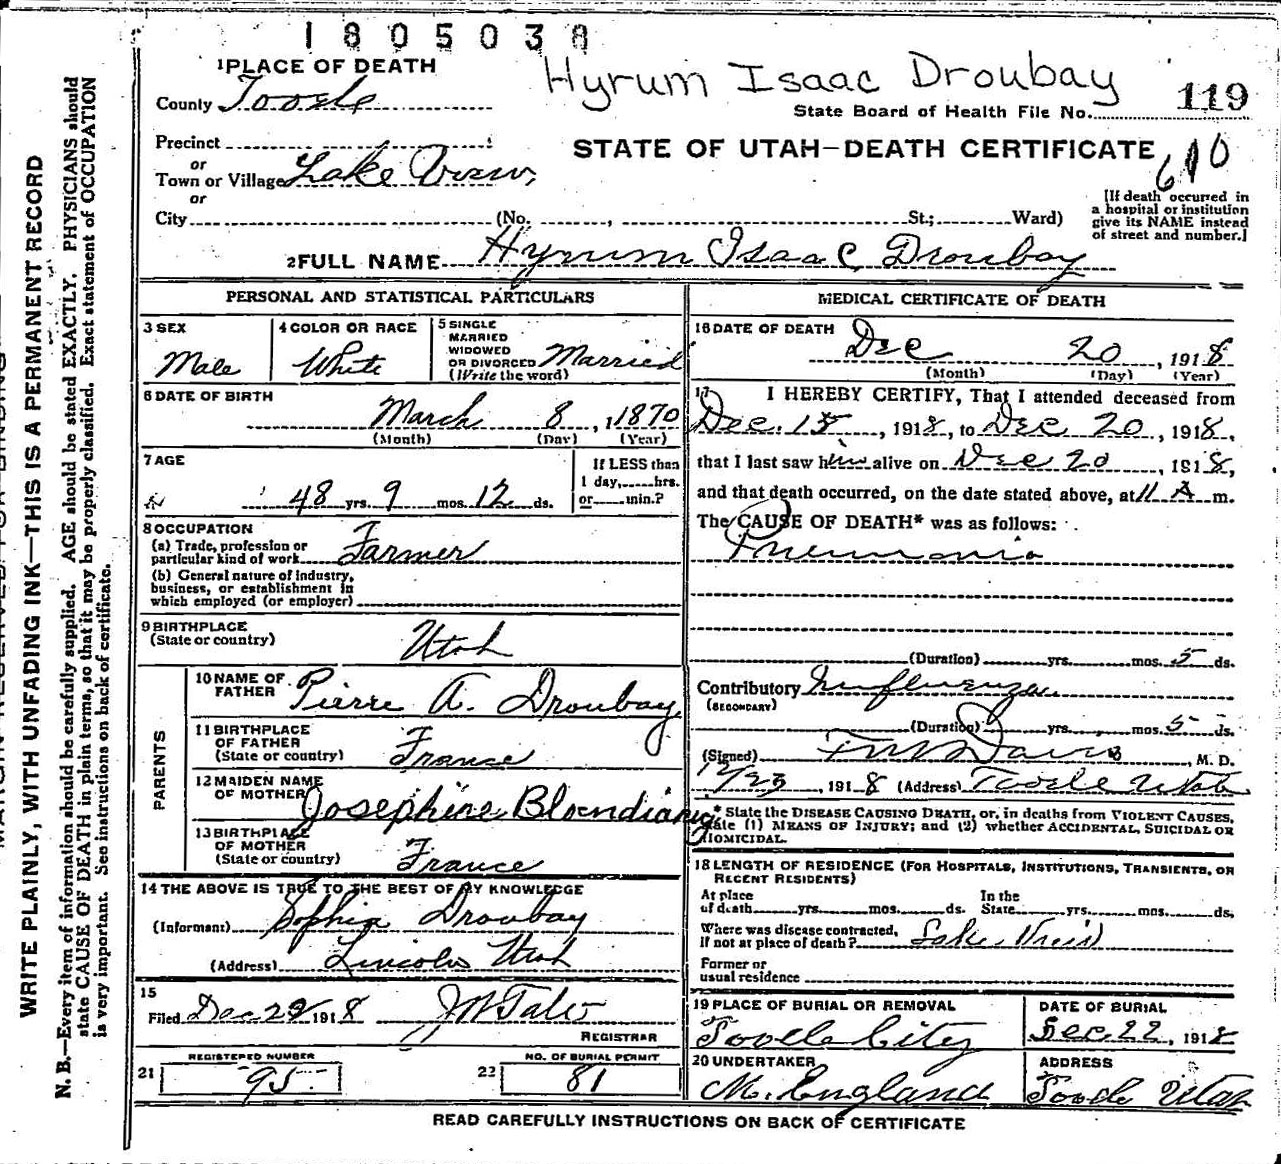 1805038
1 PLACE OF DEATH
Hyrum Isaac Droubay
119
County Tooele
State Board of Health File No.
Precinct
STATE OF UTAH—DEATH CERTIFICATE
610
or
Town or Village Lake View,
or
City (No. , St.; Ward)
[If death occurred in
a hospital or institution
give its NAME instead
of street and number.]
2 FULL NAME Hyrum Isaac Droubay
PERSONAL AND STATISTICAL PARTICULARS
3 SEX
Male
4 COLOR OR RACE
White
5 SINGLE
MARRIED
WIDOWED
OR DIVORCED Married
(Write the word)
6 DATE OF BIRTH
March 8, 1870
(Month) (Day) (Year)
7 AGE
48 yrs. 9 mos. 12 ds.
If LESS than
1 day, hrs.
or min.?
8 OCCUPATION
(a) Trade, profession or
particular kind of work Farmer
(b) General nature of industry,
business, or establishment in
which employed (or employer)
9 BIRTHPLACE
(State or country) Utah
PARENTS
10 NAME OF
FATHER Pierre A. Droubay
11 BIRTHPLACE
OF FATHER
(State or country) France
12 MAIDEN NAME
OF MOTHER Josephine
13 BIRTHPLACE
OF MOTHER
(State or country) France
14 THE ABOVE IS TRUE TO THE BEST OF MY KNOWLEDGE
(Informant) Sophia Droubay
(Address) Lincoln Utah
15
Filed Dec 1918
REGISTRAR
REGISTERED NUMBER
21 95
NO. OF BURIAL PERMIT
22 81
MEDICAL CERTIFICATE OF DEATH
16 DATE OF DEATH
Dec 20, 1918
(Month) (Day) (Year)
17 I HEREBY CERTIFY, That I attended deceased from
Dec. 15, 1918, to Dec 20, 1918,
that I last saw him alive on Dec 20, 1918,
and that death occurred, on the date stated above, at 11 A m.
The CAUSE OF DEATH* was as follows:
Pneumonia
(Duration) yrs. mos. 5 ds.
Contributory Influenza
(SECONDARY)
(Duration) yrs. mos. 5 ds.
(Signed) Davis, M. D.
12/23, 1918 (Address) Tooele Utah
* State the DISEASE CAUSING DEATH, or, in deaths from VIOLENT CAUSES,
state (1) MEANS OF INJURY; and (2) whether ACCIDENTAL, SUICIDAL OR
HOMICIDAL.
18 LENGTH OF RESIDENCE (FOR HOSPITALS, INSTITUTIONS, TRANSIENTS, OR
RECENT RESIDENTS)
At place
of death yrs. mos. ds.
In the
State yrs. mos. ds.
Where was disease contracted,
if not at place of death? Lake View
Former or
usual residence
19 PLACE OF BURIAL OR REMOVAL
Tooele City
DATE OF BURIAL
Dec. 22, 1918
20 UNDERTAKER
M. England
ADDRESS
Tooele Utah
READ CAREFULLY INSTRUCTIONS ON BACK OF CERTIFICATE
WRITE PLAINLY, WITH UNFADING INK—THIS IS A PERMANENT RECORD
N. B.—Every item of information should be carefully supplied. AGE should be stated EXACTLY. PHYSICIANS should
state CAUSE OF DEATH in plain terms, so that it may be properly classified. Exact statement of OCCUPATION
is very important. See instructions on back of certificate.